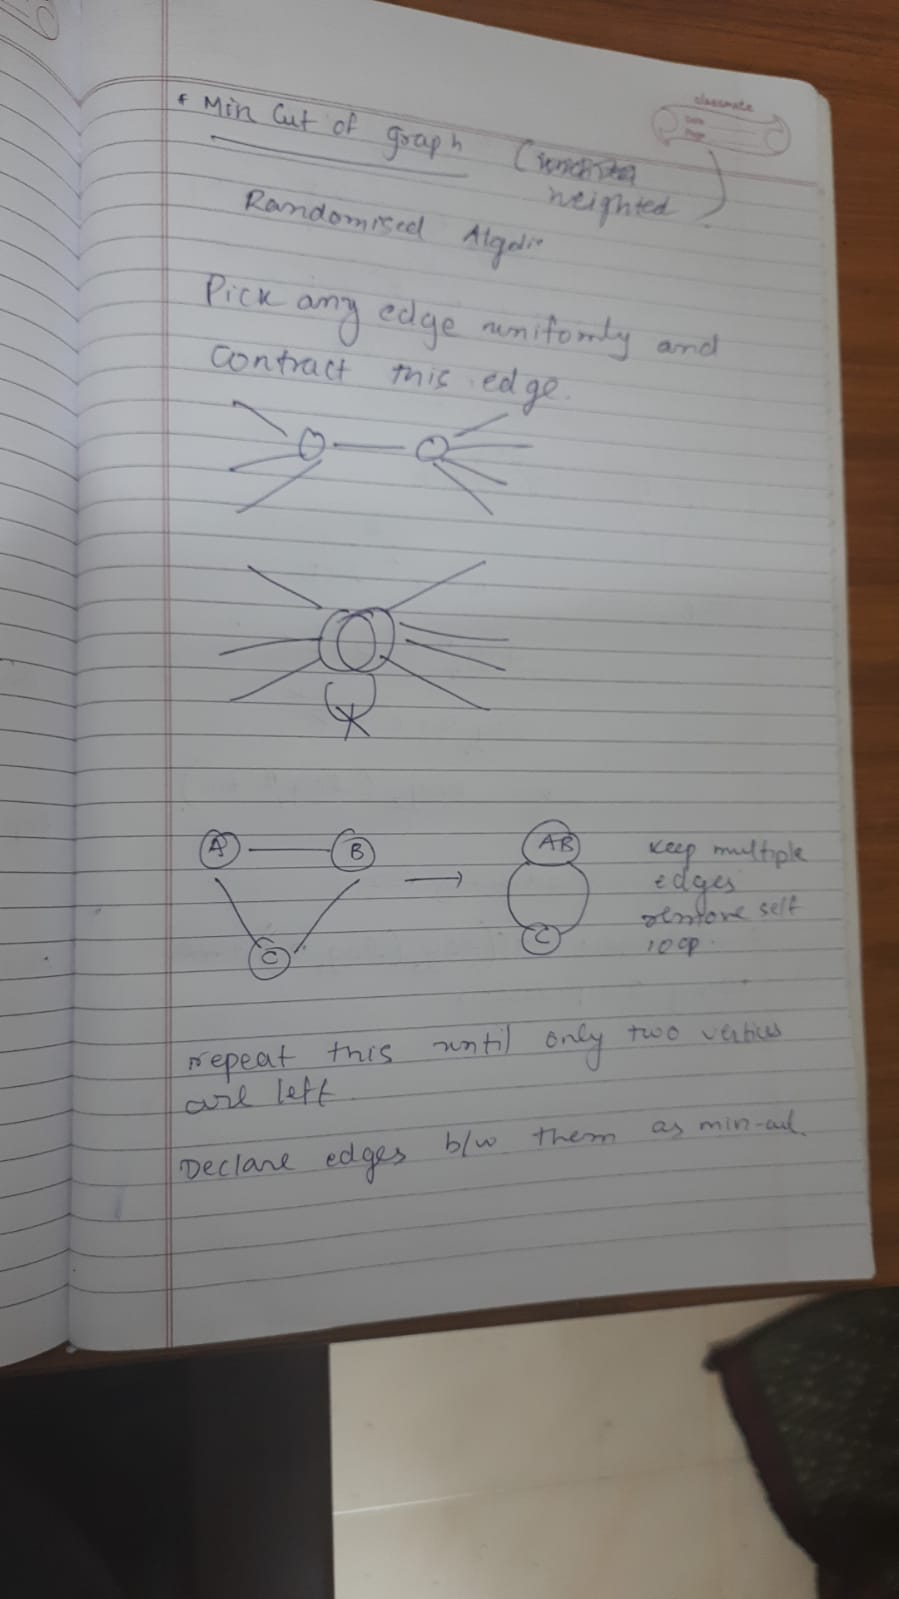 * Min Cut of graph (
weighted )
Randomised Algo
Pick any edge uniformly and
contract this edge.
A B → AB
C C
keep multiple
edges
remove self
loop.
repeat this until only two vertices
are left
Declare edges b/w them as min-cut.
classmate
Date
Page